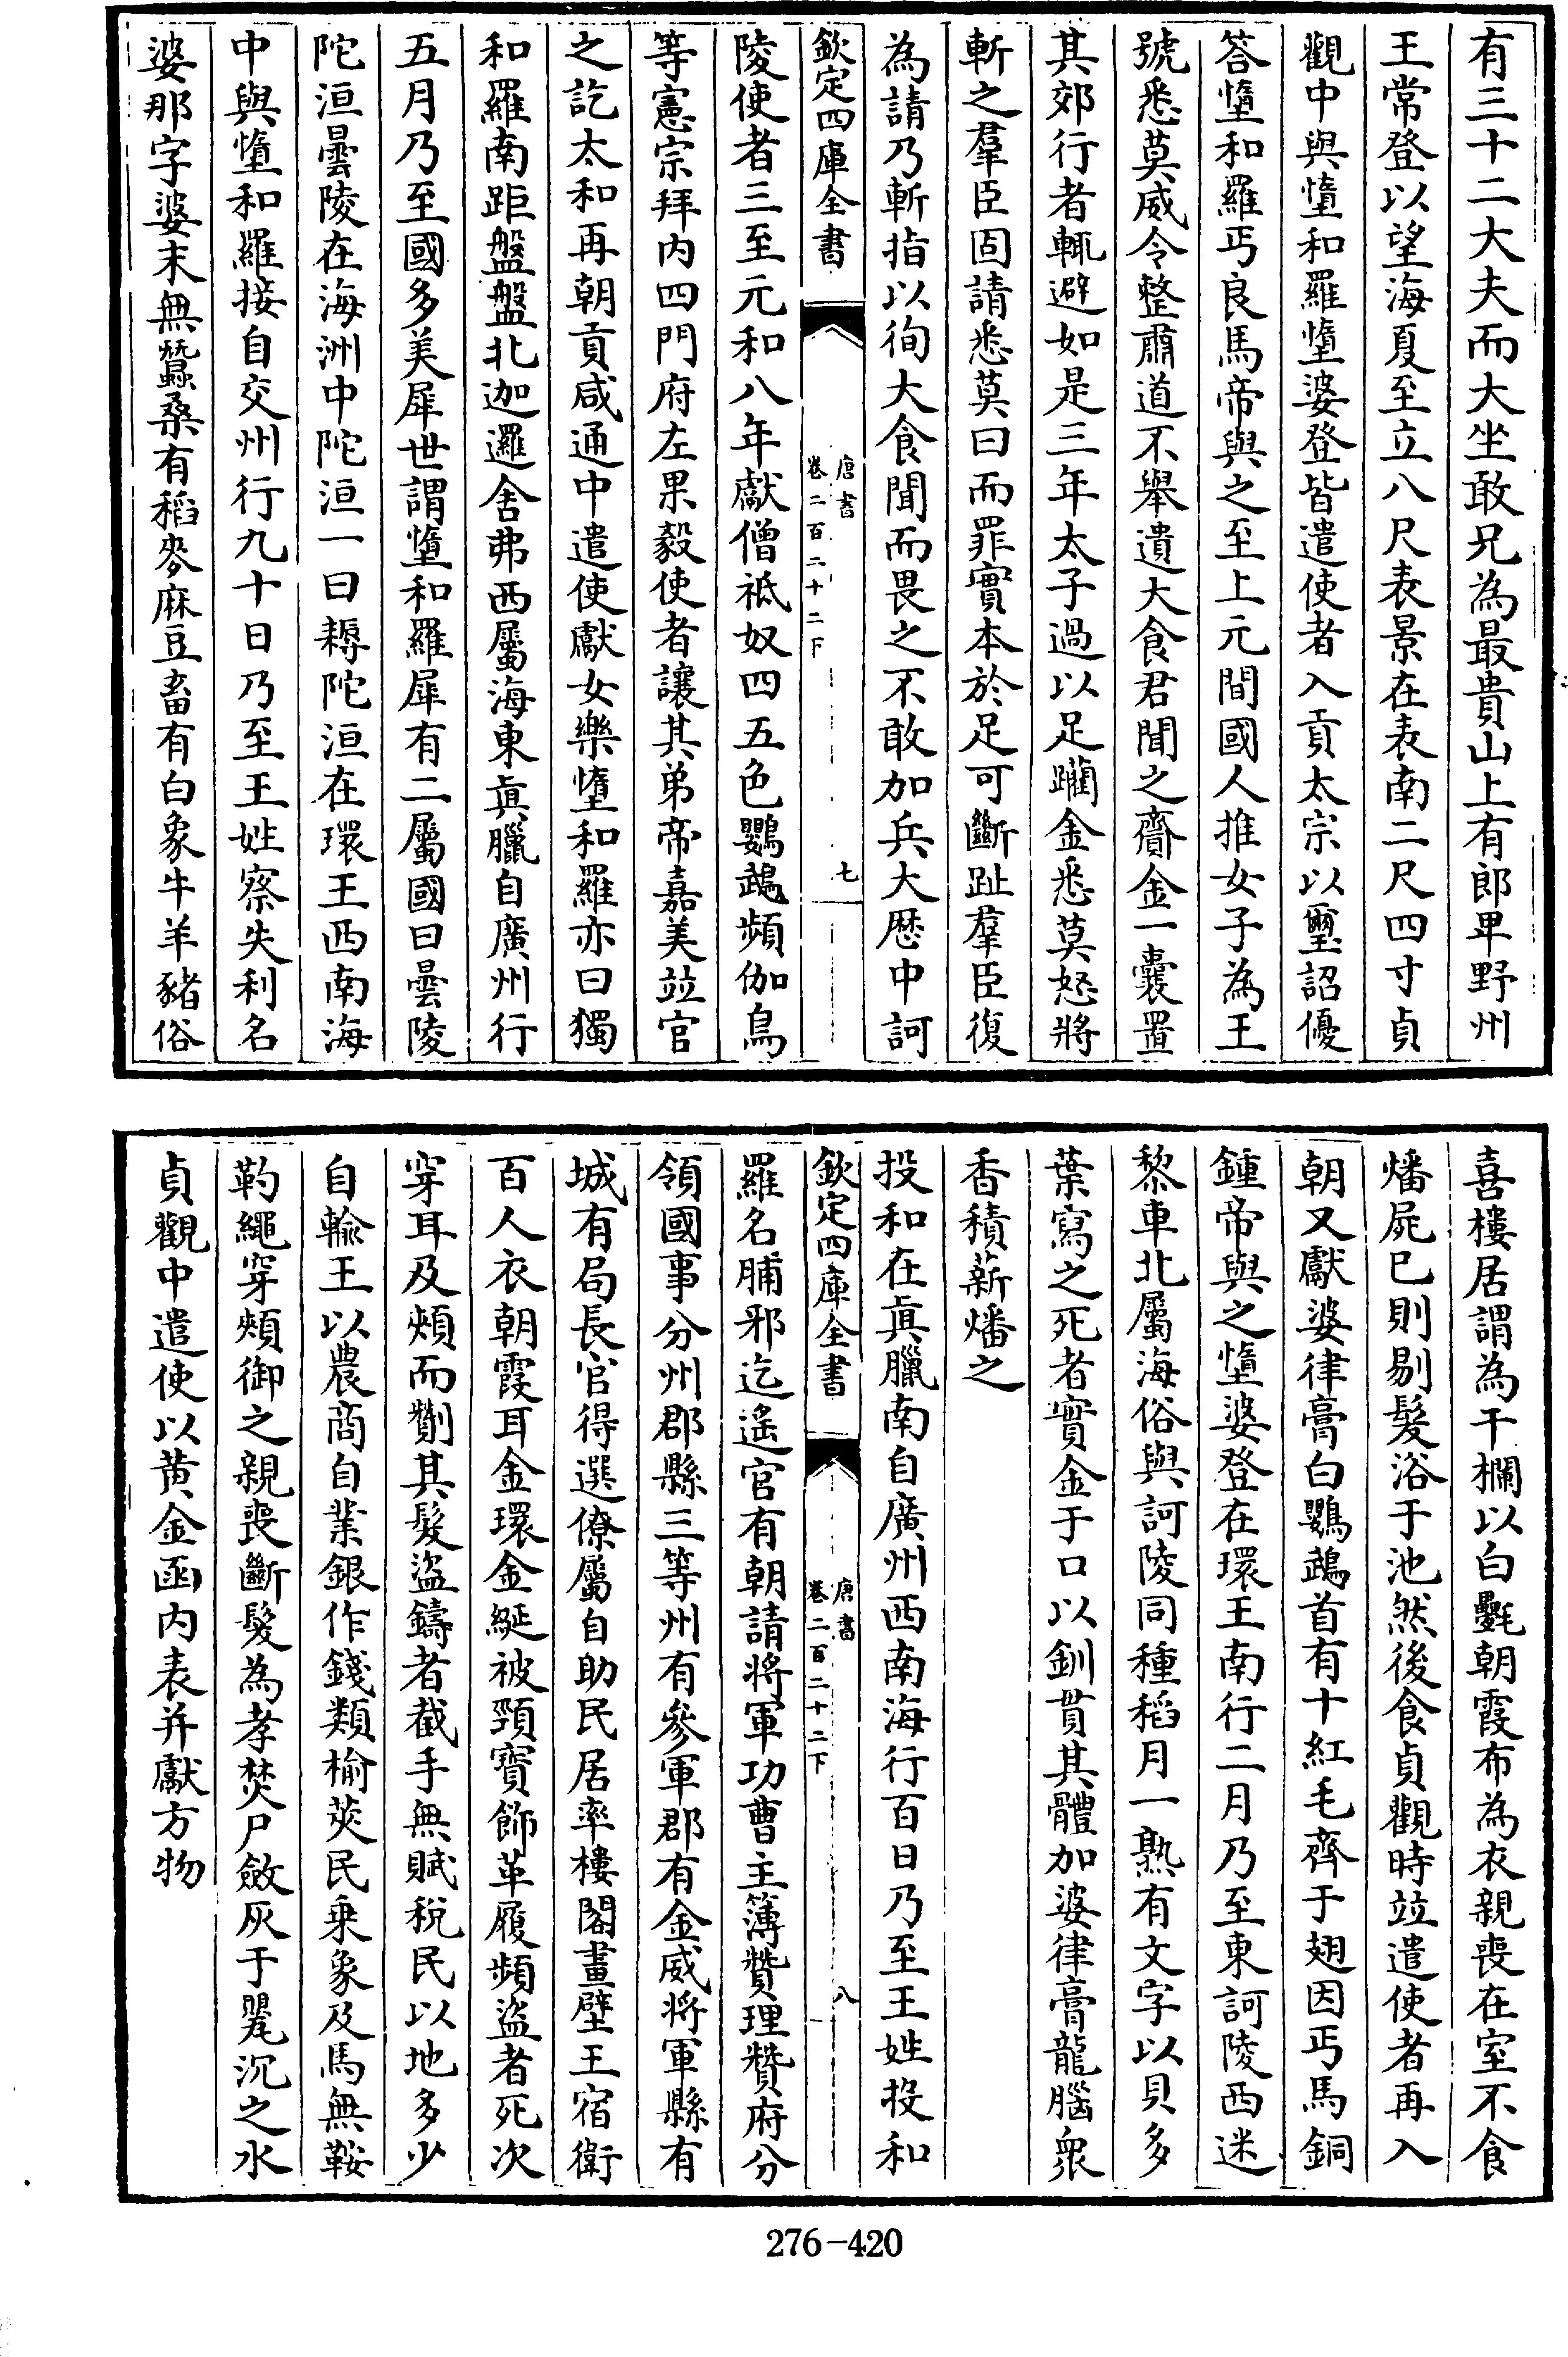 有三十二大夫而大坐敢兄為最貴山上有郎卑野州
王常登以望海夏至立八尺表景在表南二尺四寸貞
觀中與墮和羅墮婆登皆遣使者入貢太宗以璽詔優
答墮和羅丐良馬帝與之至上元間國人推女子為王
號悉莫威令整肅道不舉遺大食君聞之齎金一囊置
其郊行者輒避如是三年太子過以足躪金悉莫怒將
斬之羣臣固請悉莫曰而罪實本於足可斷趾羣臣復
為請乃斬指以徇大食聞而畏之不敢加兵大厯中訶
欽定四庫全書
唐書
卷二百二十二下
七
陵使者三至元和八年獻僧祗奴四五色鸚鵡頻伽鳥
等憲宗拜内四門府左果毅使者讓其弟帝嘉美竝官
之訖太和再朝貢咸通中遣使獻女樂墮和羅亦曰獨
和羅南距盤盤北迦邏舍弗西屬海東眞臘自廣州行
五月乃至國多美犀世謂墮和羅犀有二屬國曰曇陵
陀洹曇陵在海洲中陀洹一曰耨陀洹在環王西南海
中與墮和羅接自交州行九十日乃至王姓察失利名
婆那字婆末無蠶桑有稻麥麻豆畜有白象牛羊豬俗
喜樓居謂為干欄以白㲲朝霞布為衣親喪在室不食
燔屍已則剔髮浴于池然後食貞觀時竝遣使者再入
朝又獻婆律膏白鸚鵡首有十紅毛齊于翅因丐馬銅
鍾帝與之墮婆登在環王南行二月乃至東訶陵西迷
黎車北屬海俗與訶陵同種稻月一熟有文字以貝多
葉寫之死者實金于口以釧貫其體加婆律膏龍腦衆
香積薪燔之
投和在眞臘南自廣州西南海行百日乃至王姓投和
欽定四庫全書
唐書
卷二百二十二下
八
羅名脯邪迄遙官有朝請將軍功曹主簿贊理贊府分
領國事分州郡縣三等州有參軍郡有金威將軍縣有
城有局長官得選僚屬自助民居率樓閣畫壁王宿衛
百人衣朝霞耳金環金綖被頸寳飾革履頻盜者死次
穿耳及頰而劗其髮盜鑄者截手無賦稅民以地多少
自輸王以農商自業銀作錢類榆莢民乗象及馬無鞍
靮繩穿頰御之親喪斷髮為孝焚尸斂灰于甖沉之水
貞觀中遣使以黄金函内表并獻方物
276-420